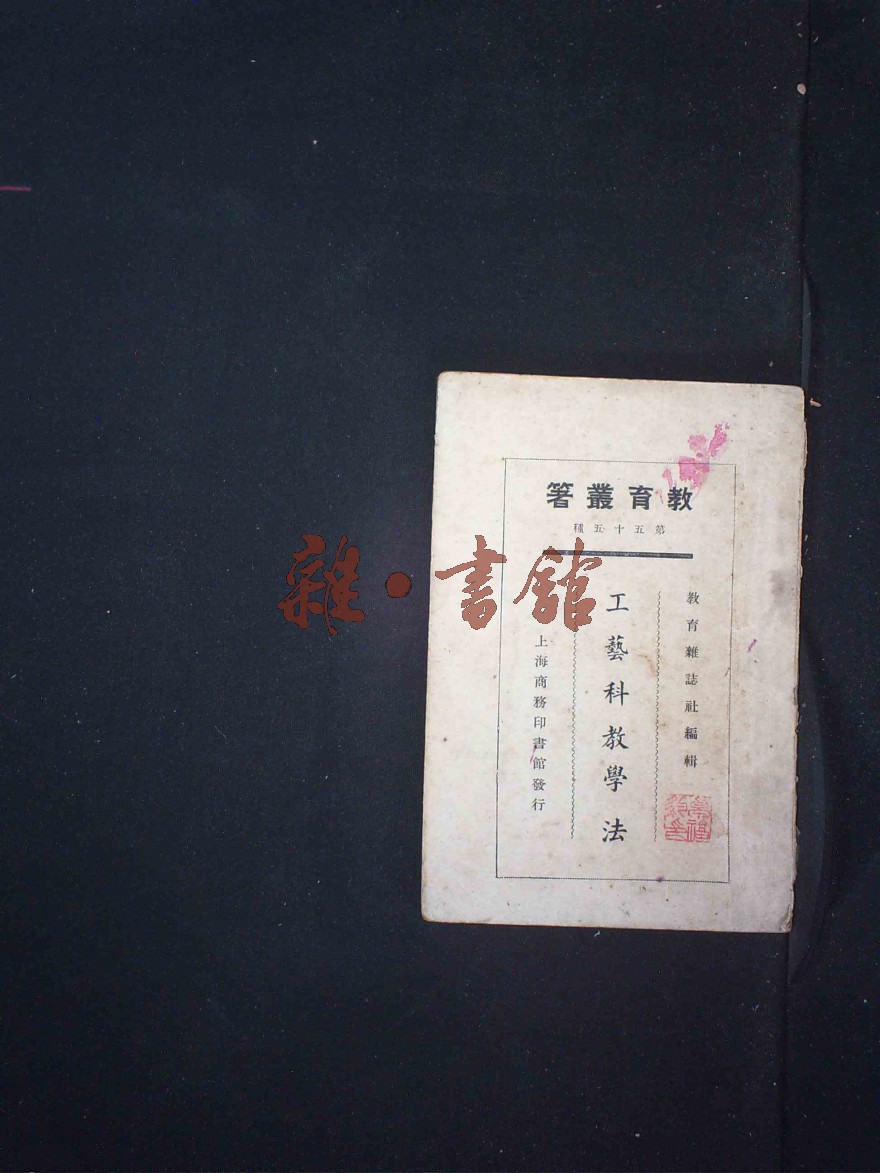 教育叢箸
第五十五種
教育雜誌社編輯
工藝科教學法
上海商務印書館發行
雜·書館